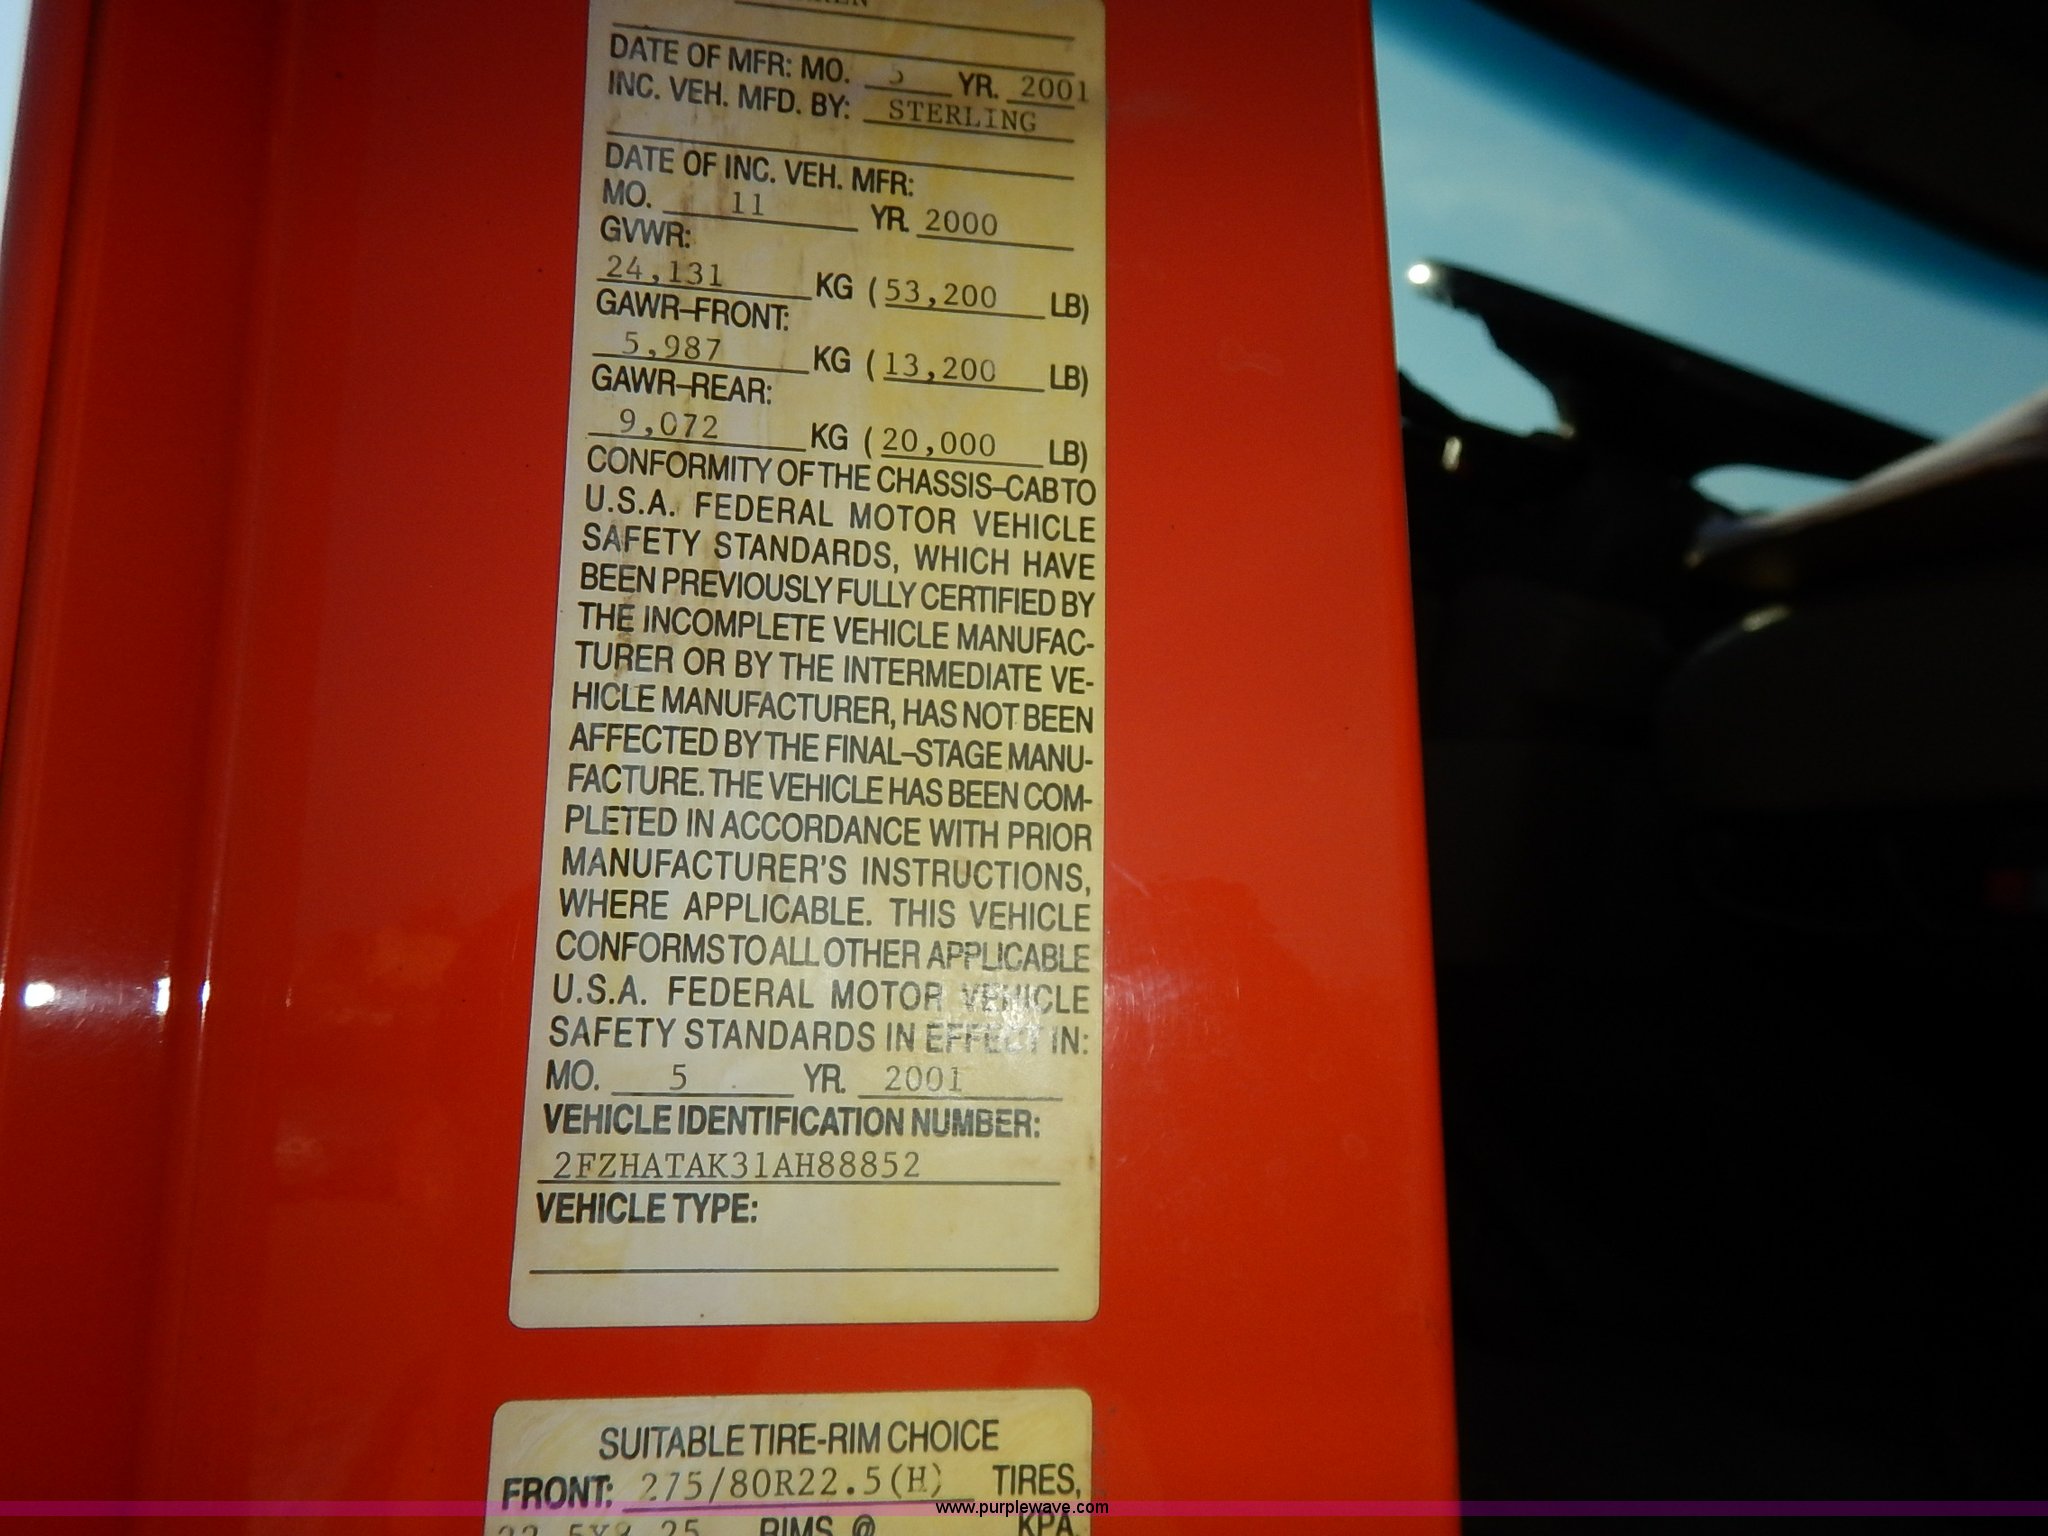 DATE OF MFR: MO. 5 YR. 2001
INC. VEH. MFD. BY: STERLING
DATE OF INC. VEH. MFR:
MO. 11 YR. 2000
GVWR:
24,131 KG (53,200 LB)
GAWR-FRONT:
5,987 KG (13,200 LB)
GAWR-REAR:
9,072 KG (20,000 LB)
CONFORMITY OF THE CHASSIS-CAB TO
U.S.A. FEDERAL MOTOR VEHICLE
SAFETY STANDARDS, WHICH HAVE
BEEN PREVIOUSLY FULLY CERTIFIED BY
THE INCOMPLETE VEHICLE MANUFAC-
TURER OR BY THE INTERMEDIATE VE-
HICLE MANUFACTURER, HAS NOT BEEN
AFFECTED BY THE FINAL-STAGE MANU-
FACTURE. THE VEHICLE HAS BEEN COM-
PLETED IN ACCORDANCE WITH PRIOR
MANUFACTURER'S INSTRUCTIONS,
WHERE APPLICABLE. THIS VEHICLE
CONFORMS TO ALL OTHER APPLICABLE
U.S.A. FEDERAL MOTOR VEHICLE
SAFETY STANDARDS IN EFFECT IN:
MO. 5 YR. 2001
VEHICLE IDENTIFICATION NUMBER:
2FZHATAK31AH88852
VEHICLE TYPE:
SUITABLE TIRE-RIM CHOICE
FRONT: 275/80R22.5(H) TIRES,
22.5X8.25 RIMS @ KPA
www.purplewave.com